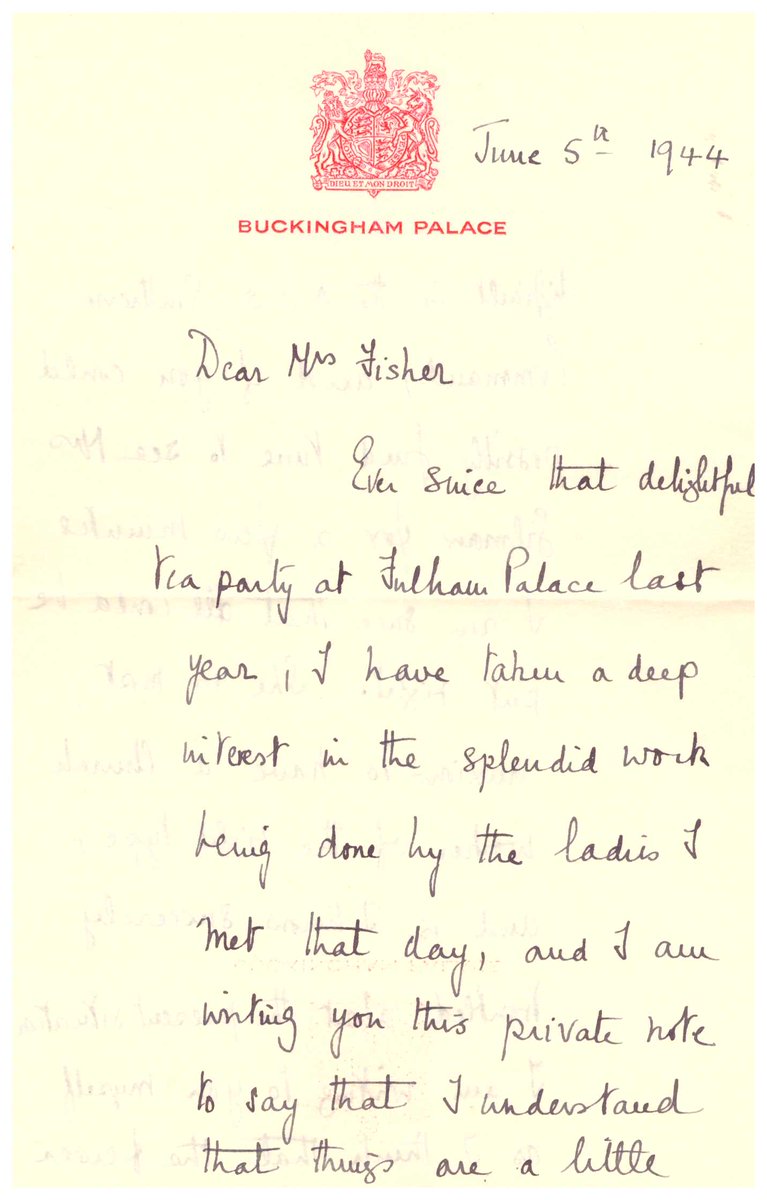 DIEU ET MON DROIT
June 5th 1944
BUCKINGHAM PALACE
Dear Mrs Fisher
Ever since that delightful
tea party at Fulham Palace last
year, I have taken a deep
interest in the splendid work
being done by the ladies I
met that day, and I am
writing you this private note
to say that I understand
that things are a little